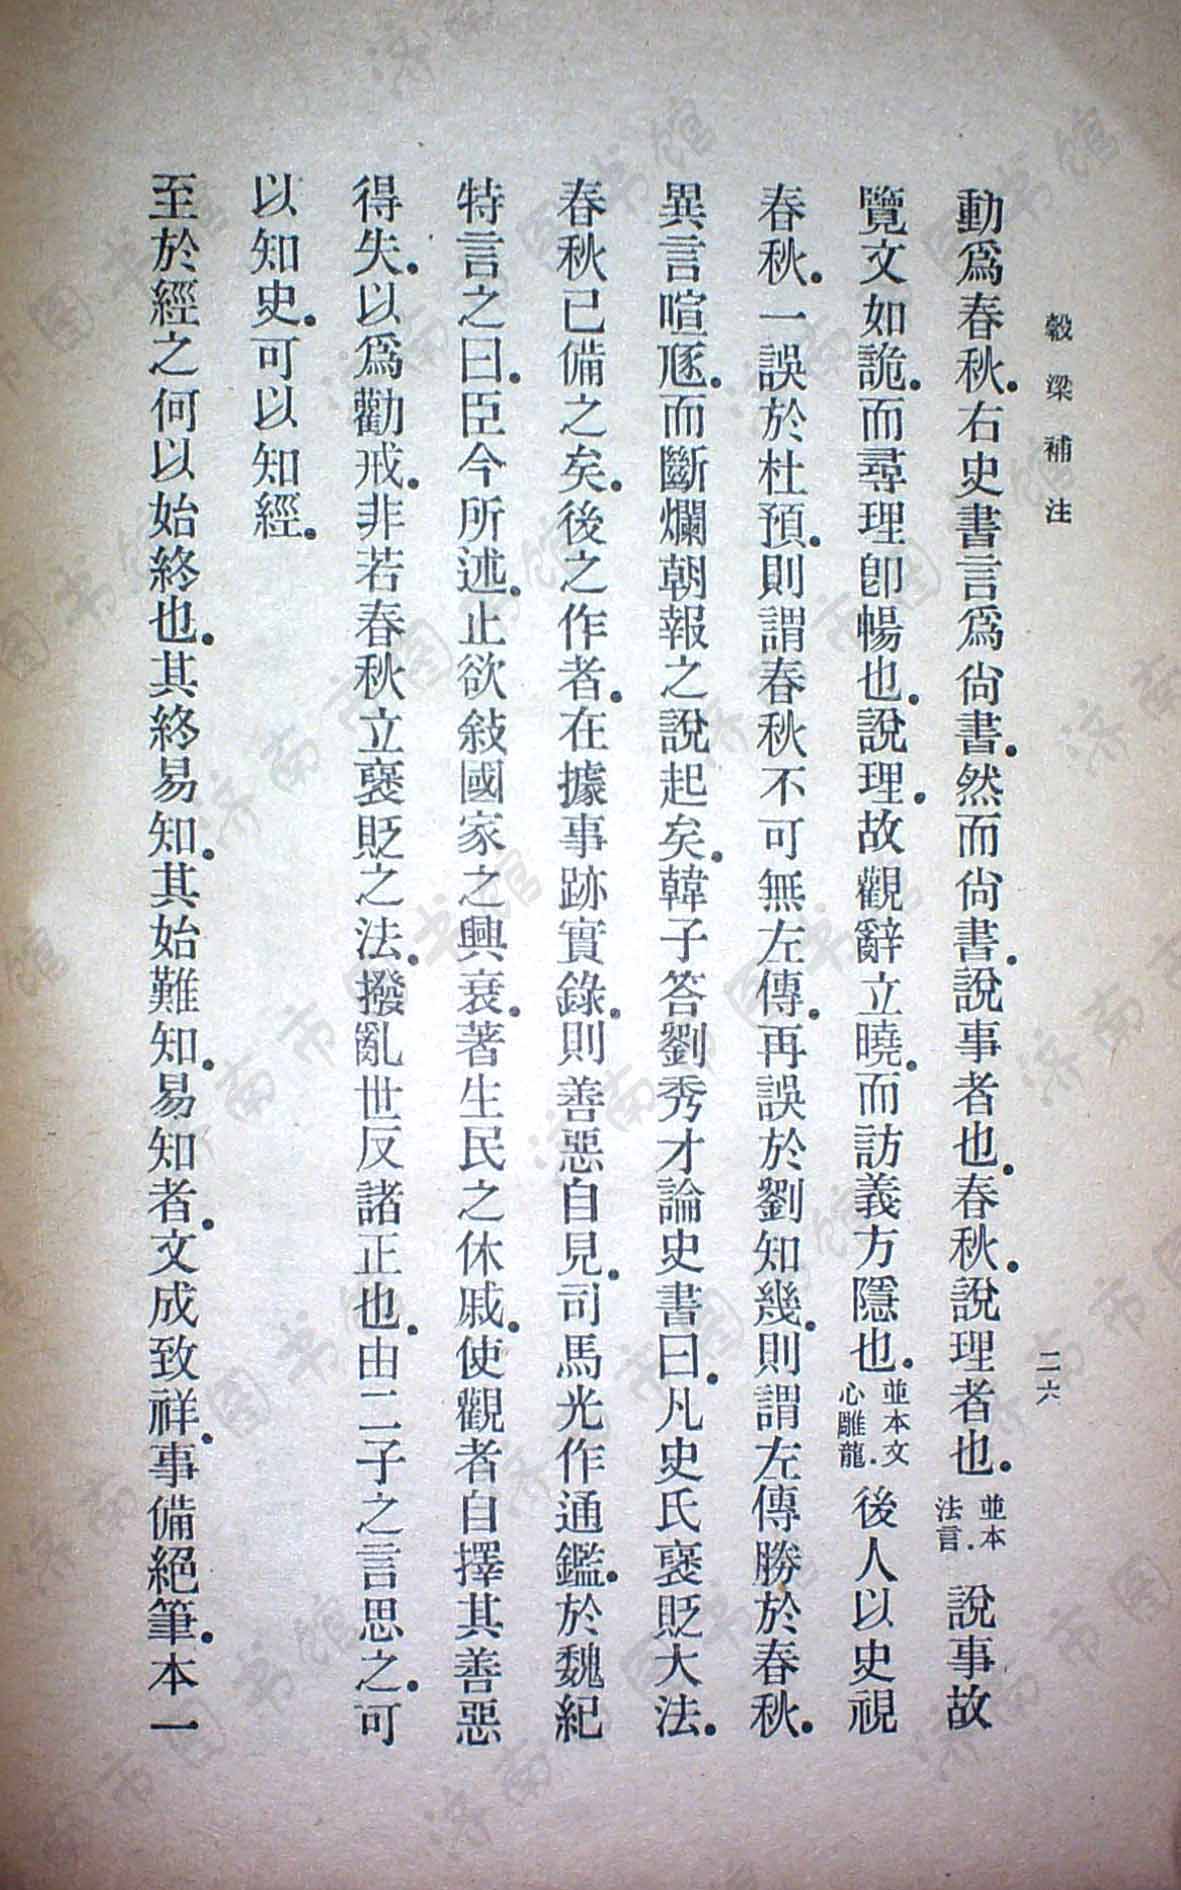 穀梁補注
二六
動爲春秋.右史書言爲尙書.然而尙書.說事者也.春秋.說理者也.並本法言.說事故
覽文如詭.而尋理卽暢也.說理.故觀辭立曉.而訪義方隱也.並本文心雕龍.後人以史視
春秋.一誤於杜預.則謂春秋不可無左傳.再誤於劉知幾.則謂左傳勝於春秋.
異言喧豗.而斷爛朝報之說起矣.韓子答劉秀才論史書曰.凡史氏褒貶大法.
春秋已備之矣.後之作者.在據事跡實錄.則善惡自見.司馬光作通鑑.於魏紀
特言之曰.臣今所述.止欲敍國家之興衰.著生民之休戚.使觀者自擇其善惡
得失.以爲勸戒.非若春秋立褒貶之法.撥亂世反諸正也.由二子之言思之.可
以知史.可以知經.
至於經之何以始終也.其終易知.其始難知.易知者.文成致祥.事備絕筆.本一